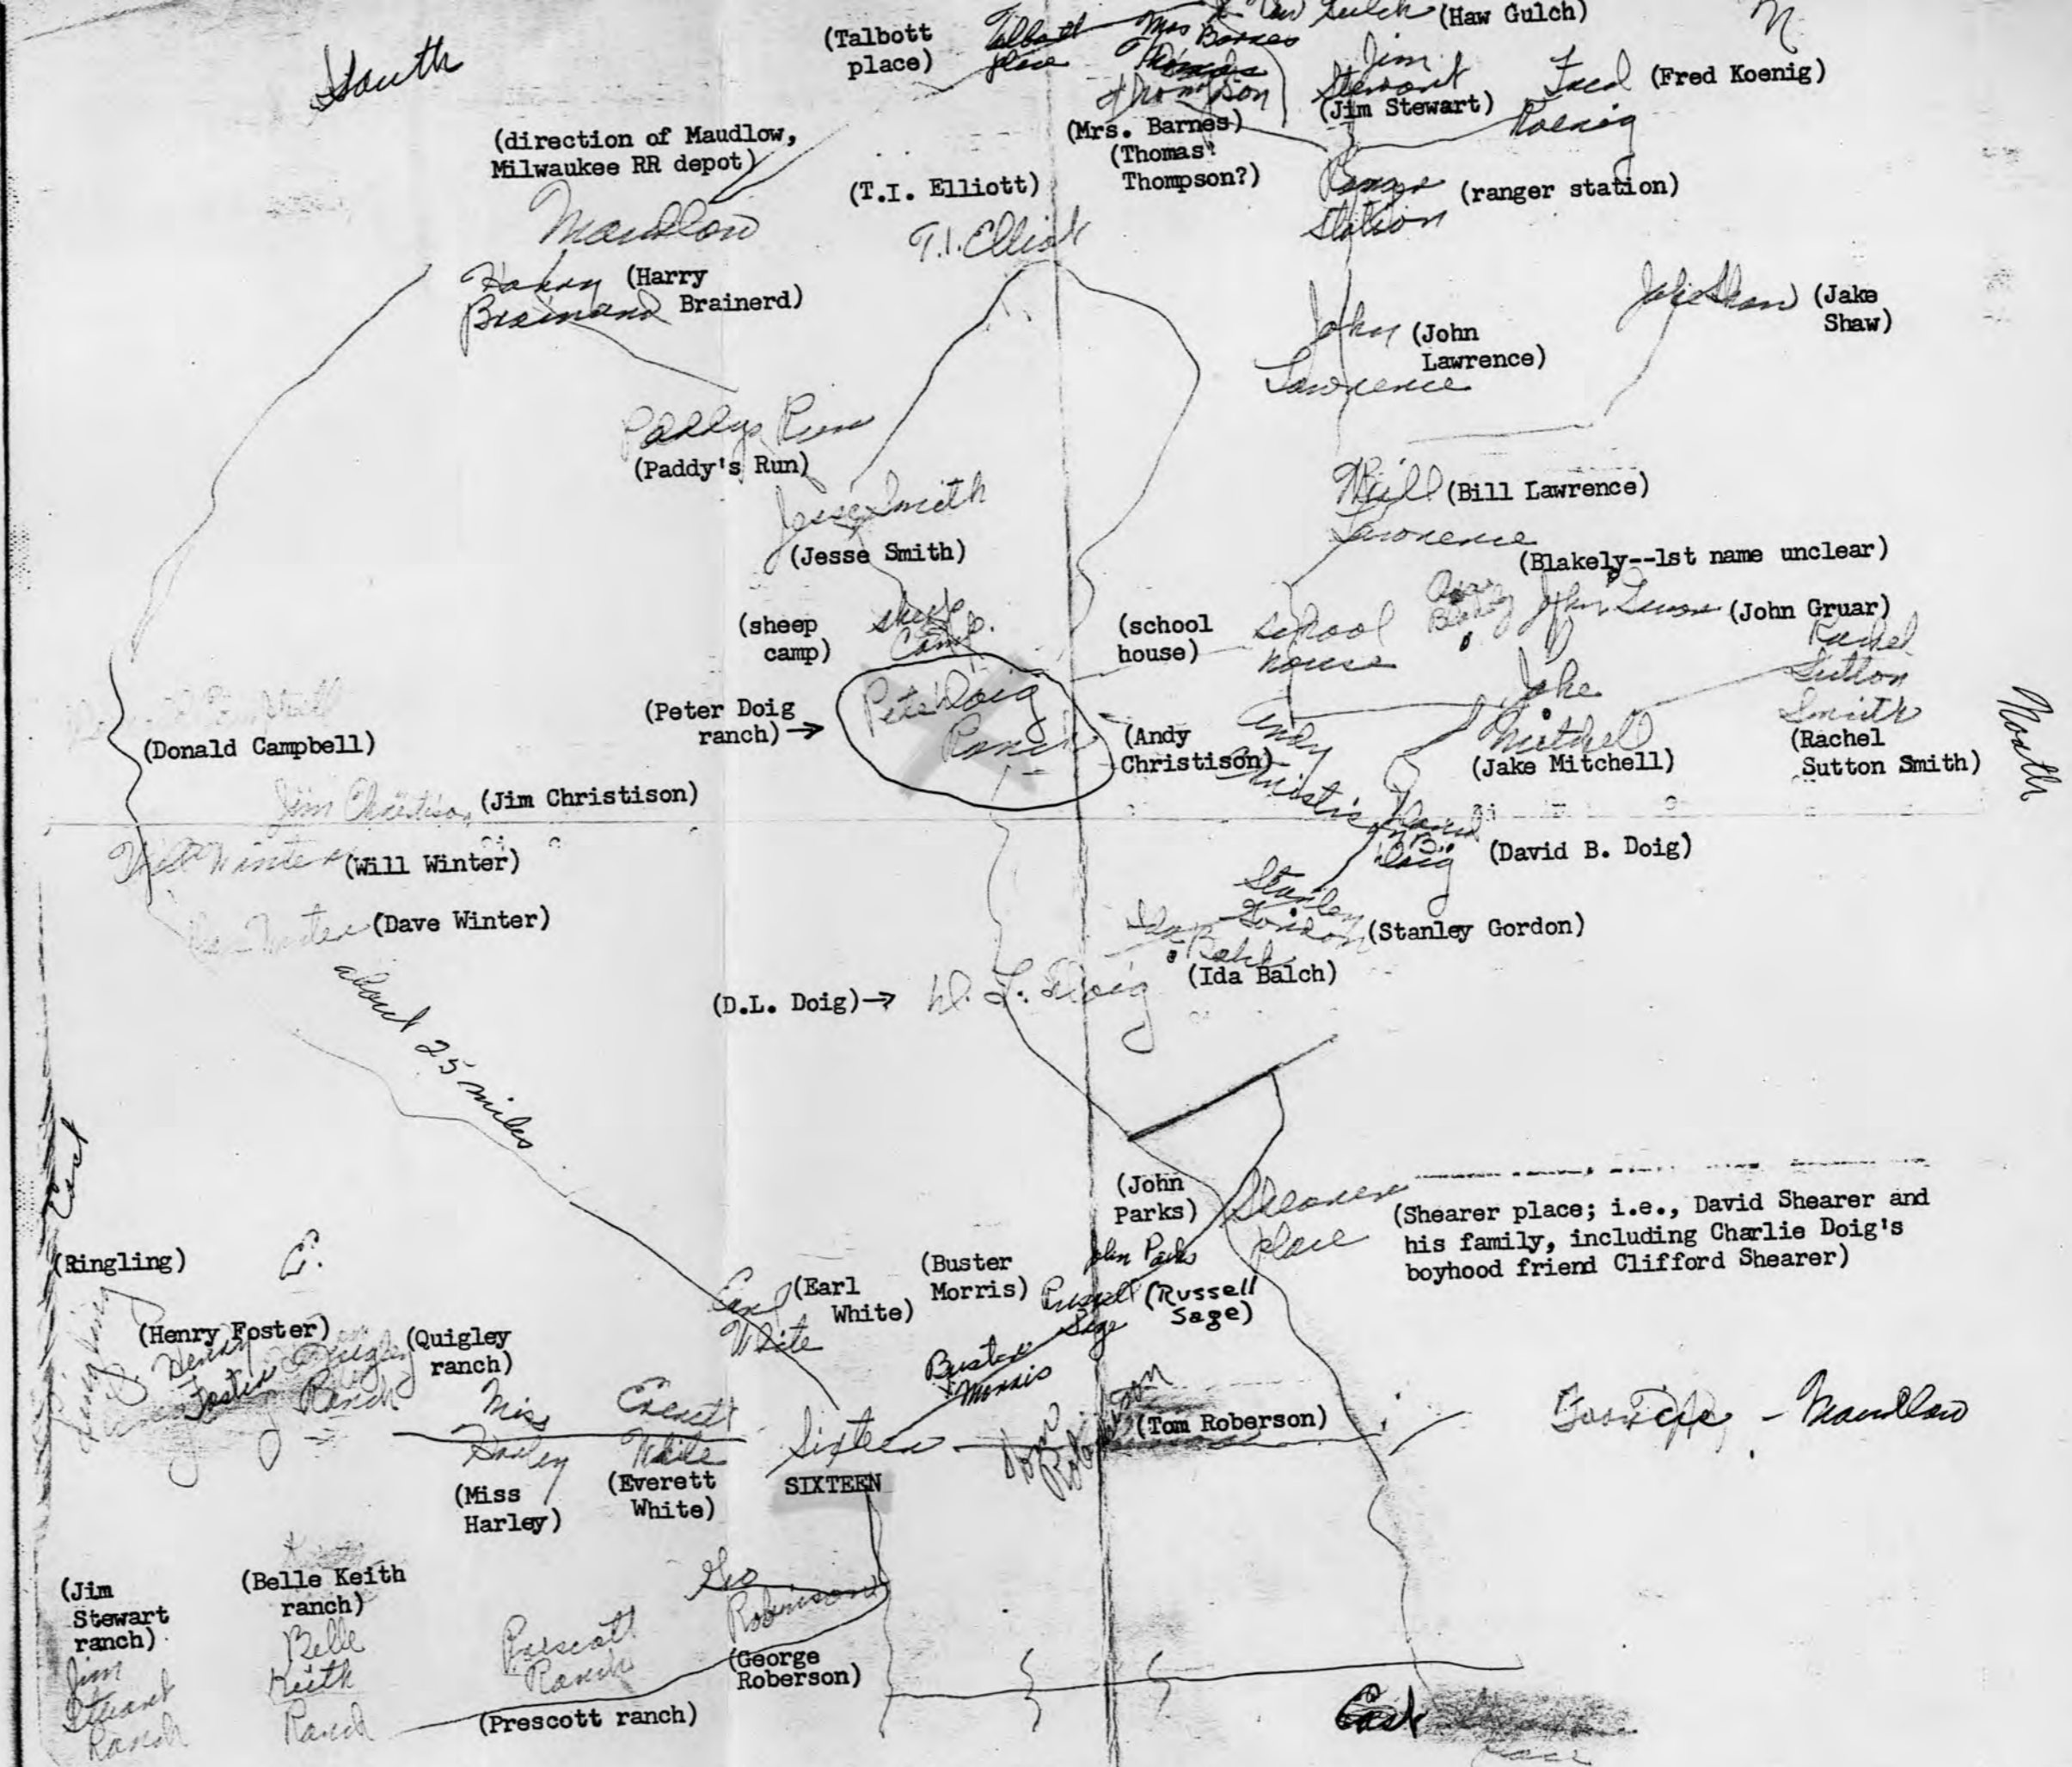 South
(Talbott
place)
Talbott
place
Mrs
Barnes
Thomas
Thompson
Gulch (Haw Gulch)
N
Jim
Stewart
(Jim Stewart)
Fred
Koenig
(Fred Koenig)
(Mrs. Barnes)
(Thomas?
Thompson?)
(direction of Maudlow,
Milwaukee RR depot)
Maudlow
(T.I. Elliott)
T.I. Elliott
Ranger
Station
(ranger station)
Harry
Brainard
(Harry
Brainerd)
John
Lawrence
(John
Lawrence)
Jake Shaw
(Jake
Shaw)
Paddys Run
(Paddy's Run)
Jesse Smith
(Jesse Smith)
Bill
Lawrence
(Bill Lawrence)
(Blakely--1st name unclear)
(sheep
camp)
sheep
Camp.
(school
house)
School
house
John
(John Gruar)
Rachel
Sutton
Smith
(Rachel
Sutton Smith)
North
(Peter Doig
ranch)→
Pete Doig
Ranch
(Andy
Christison)
Andy
Jake
Mitchel
(Jake Mitchell)
(Donald Campbell)
Jim Christison
(Jim Christison)
Will Winter
(Will Winter)
David
B.
Doig
(David B. Doig)
(Dave Winter)
Stanley
Gordon
(Stanley Gordon)
Ida
Balch
(Ida Balch)
about 25 miles
(D.L. Doig)→
D. L. Doig
East
(John
Parks)
John Parks
Shearer
place
(Shearer place; i.e., David Shearer and
his family, including Charlie Doig's
boyhood friend Clifford Shearer)
(Ringling)
Ringling
E.
Earl
White
(Earl
White)
(Buster
Morris)
Buster
Morris
Russell
Sage
(Russell
Sage)
(Henry Foster)
Henry
Foster
Quigley
Ranch
(Quigley
ranch)
Miss
Harley
(Miss
Harley)
Everett
White
(Everett
White)
Sixteen
SIXTEEN
Tom
(Tom Roberson)
- Maudlow
(Jim
Stewart
ranch)
Jim
Stuart
Ranch
(Belle Keith
ranch)
Belle
Keith
Ranch
Prescott
Ranch
(Prescott ranch)
Geo
Robinson
(George
Roberson)
East